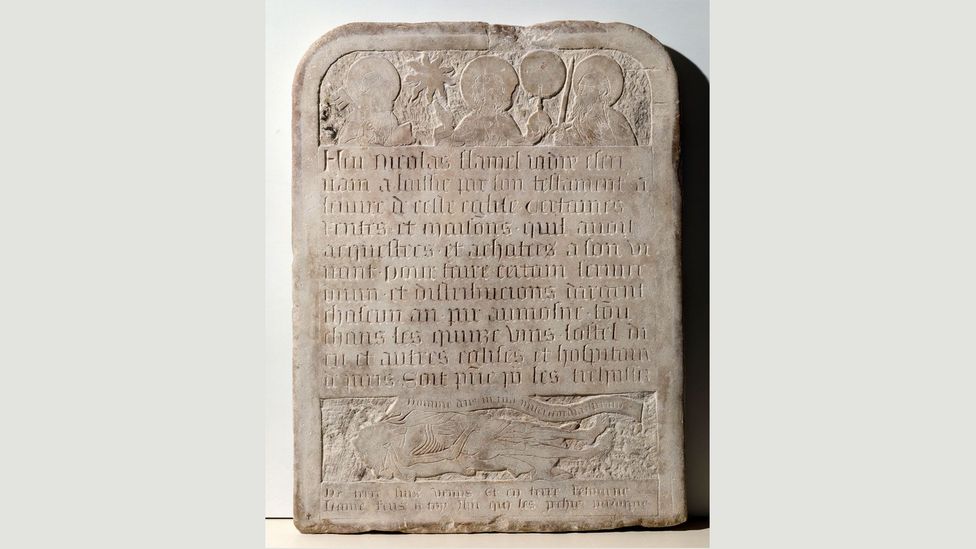 feu Nicolas flamel iadiz escri
uain a laissie par son testament a
leuure de ceste eglise certaines
rentes et maisons quil auoit
acquestees et achatees a son vi
uant pour faire certain seruice
diuin et distribucions dargent
chascun an par aumosne touc
chans les quinze vins lostel di
eu et autres eglises et hospitaux
a paris Soit prie pour les trespassez
Domine deus in tua misericordia speraui
De terre suis venus et en terre retourne
lame rens a toy qui les pechiez pardonne